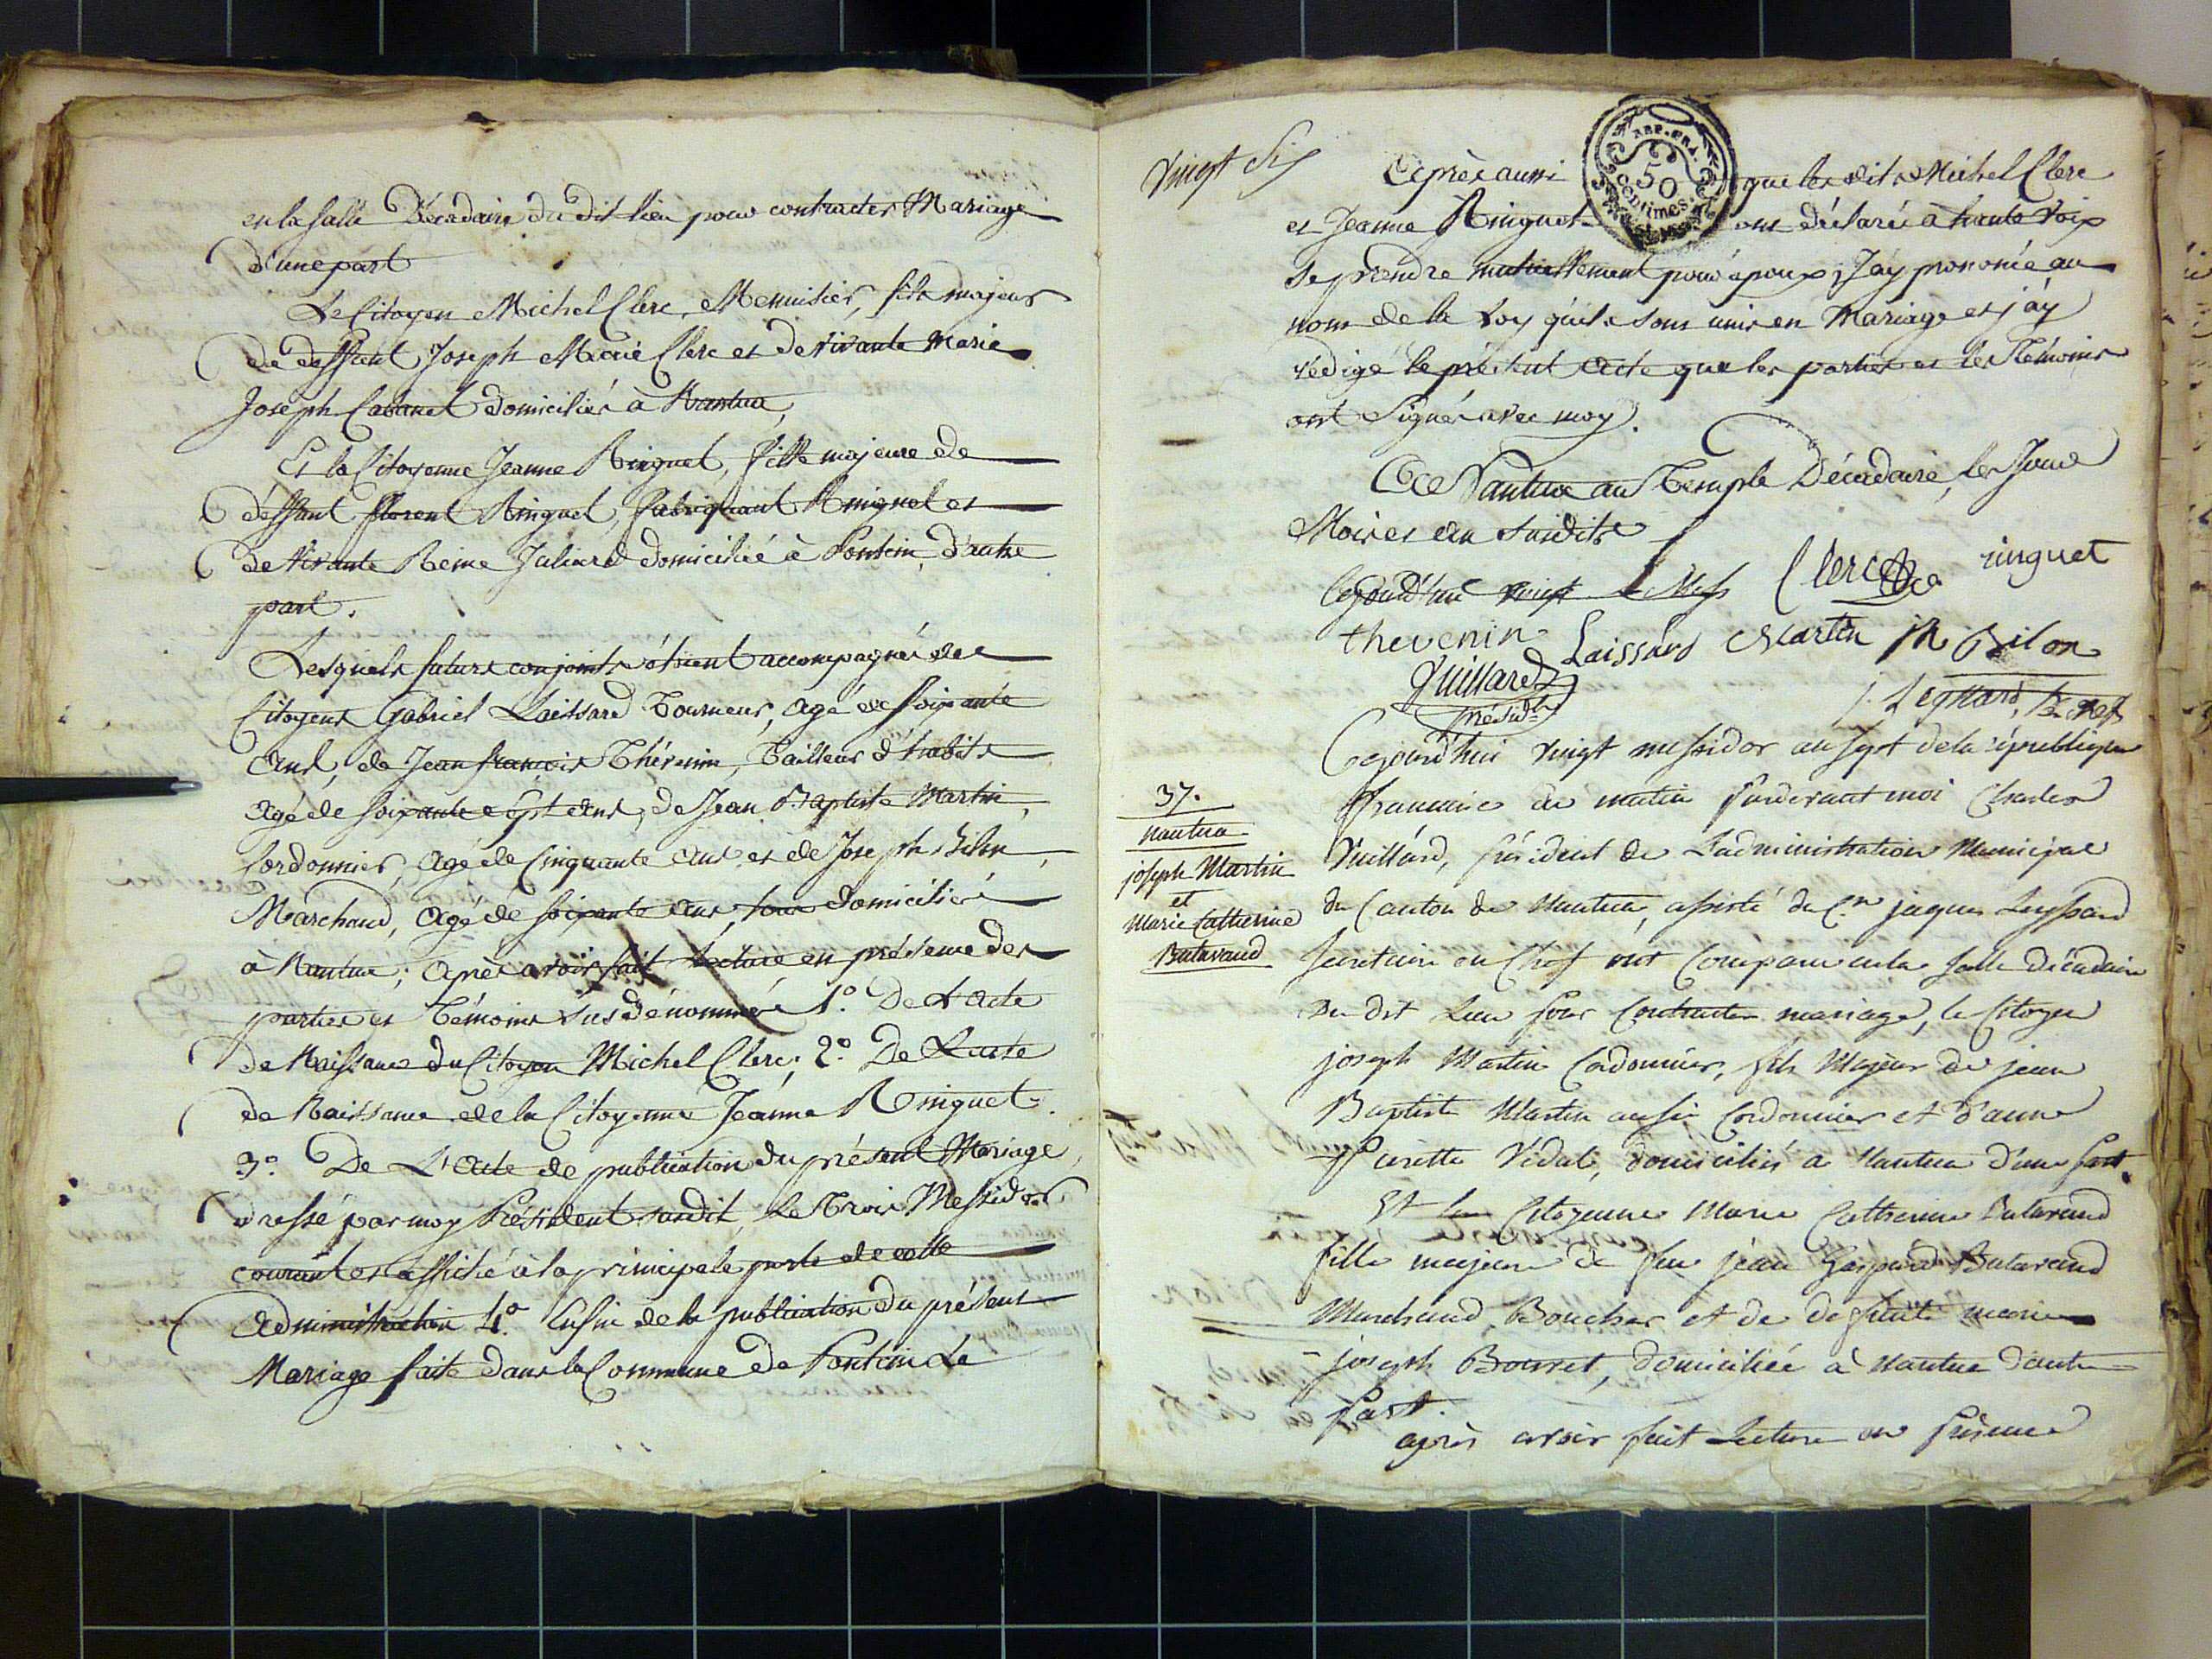 en la salle Décadaire du dit lieu pour contracter Mariage
d'une part
Le Citoyen Michel Clerc, Menuisier, fils majeur
de deffunt Joseph Marie Clerc et de vivante Marie
Joseph Cabanet domiciliés à Nantua,
Et la Citoyenne Jeanne Ringuet, fille majeure de
déffunt florent Ringuet, fabriquant
de vivante Reine Juliard domiciliée à Pontcin, d'autre
part.
Lesquels futurs conjoints étoient accompagnés des
Citoyens Gabriel Laissard Tourneur, agé de soixante
ans, de Jean françois Thévenin, Tailleur d'habits
agé de soixante e sept ans, de Jean Baptiste Martin,
Cordonnier, agé de Cinquante ans et de Joseph Bilon,
Marchand, agé de soixante ans, tous domiciliés
à Nantua; après avoir fait lecture en présence des
parties et Témoins susdénommés 1.° De L'acte
de Naissance du Citoyen Michel Clerc; 2.° De L'acte
de Naissance de la Citoyenne Jeanne Ringuet.
3.° De L'acte de publication du présent Mariage,
dressé par moy Président susdit, Le Trois Messidor
courant et affiché à la principale porte de cette
administration 4.° Enfin de la publication du présent
Mariage faite dans la Commune de Pontcin Le
Vingt Six
Après aussi que les dits Michel Clerc
REP. FRA.
50
centimes
et Jeanne Ringuet ont déclaré à haute voix
se prendre mutuellement pour époux, J'ay prononcé au
nom de la Loy qu'ils sont unis en Mariage et j'ay
rédigé le présent acte que les parties et les Témoins
ont Signés avec moy.
Nantua au Temple Décadaire, les Jour
Mois et an susdits
Cejourd'huy vingt Mess Clerc ringuet
thevenin Laissard Martin Bilon
Vuillard
présidt
37.
nantua
joseph Martin
et
Marie Catherine
Butavand
Cejourd'hui vingt messidor an sept de la république
française au matin pardevant moi Charles
Vuillard, président de L'administration Municipal
du Canton de Nantua, assisté du Cn jaques Leyssard
Secretaire en Chef ont Comparu en la salle décadaire
du dit Lieu pour Contracter mariage, le Citoyen
joseph Martin Cordonnier, fils Majeur de jean
Baptiste Martin aussi Cordonnier et d'anne
Pierette Vidal, domiciliés a Nantua d'une part.
Et la Citoyenne Marie Catherine Butavand
fille majeure de feu jean Gaspard Butavand
Marchand Boucher et de defunte marie
joseph Bouvet, domiciliée à Nantua d'autre
part.
après avoir fait Lecture en présence